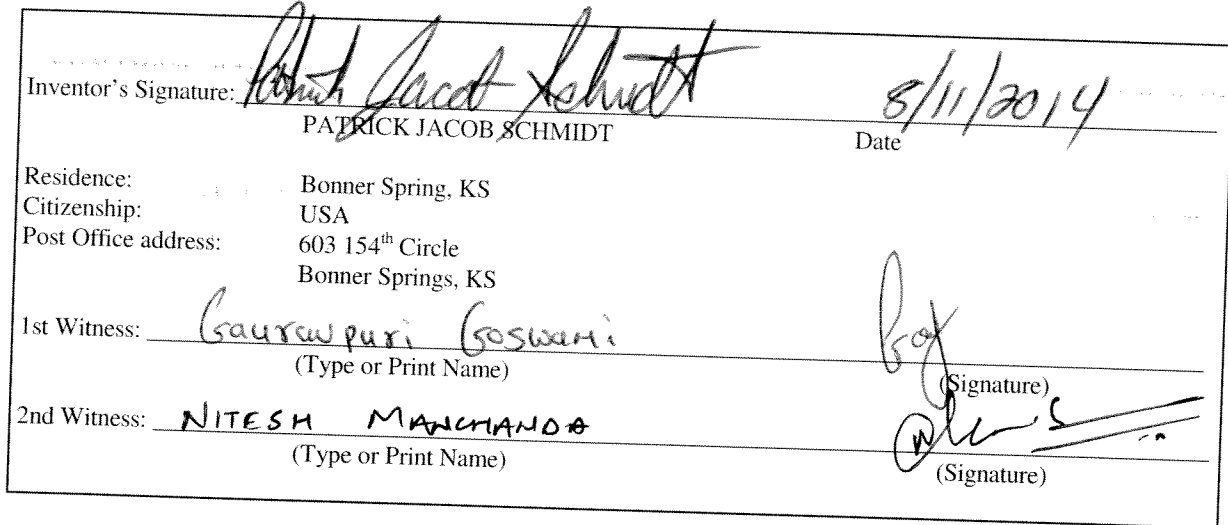 Inventor's Signature: Patrick Jacob Schmidt 8/11/2014
PATRICK JACOB SCHMIDT Date
Residence: Bonner Spring, KS
Citizenship: USA
Post Office address: 603 154th Circle
Bonner Springs, KS
1st Witness: Gauravpuri Goswami
(Type or Print Name) (Signature)
2nd Witness: NITESH MANCHANDA
(Type or Print Name) (Signature)